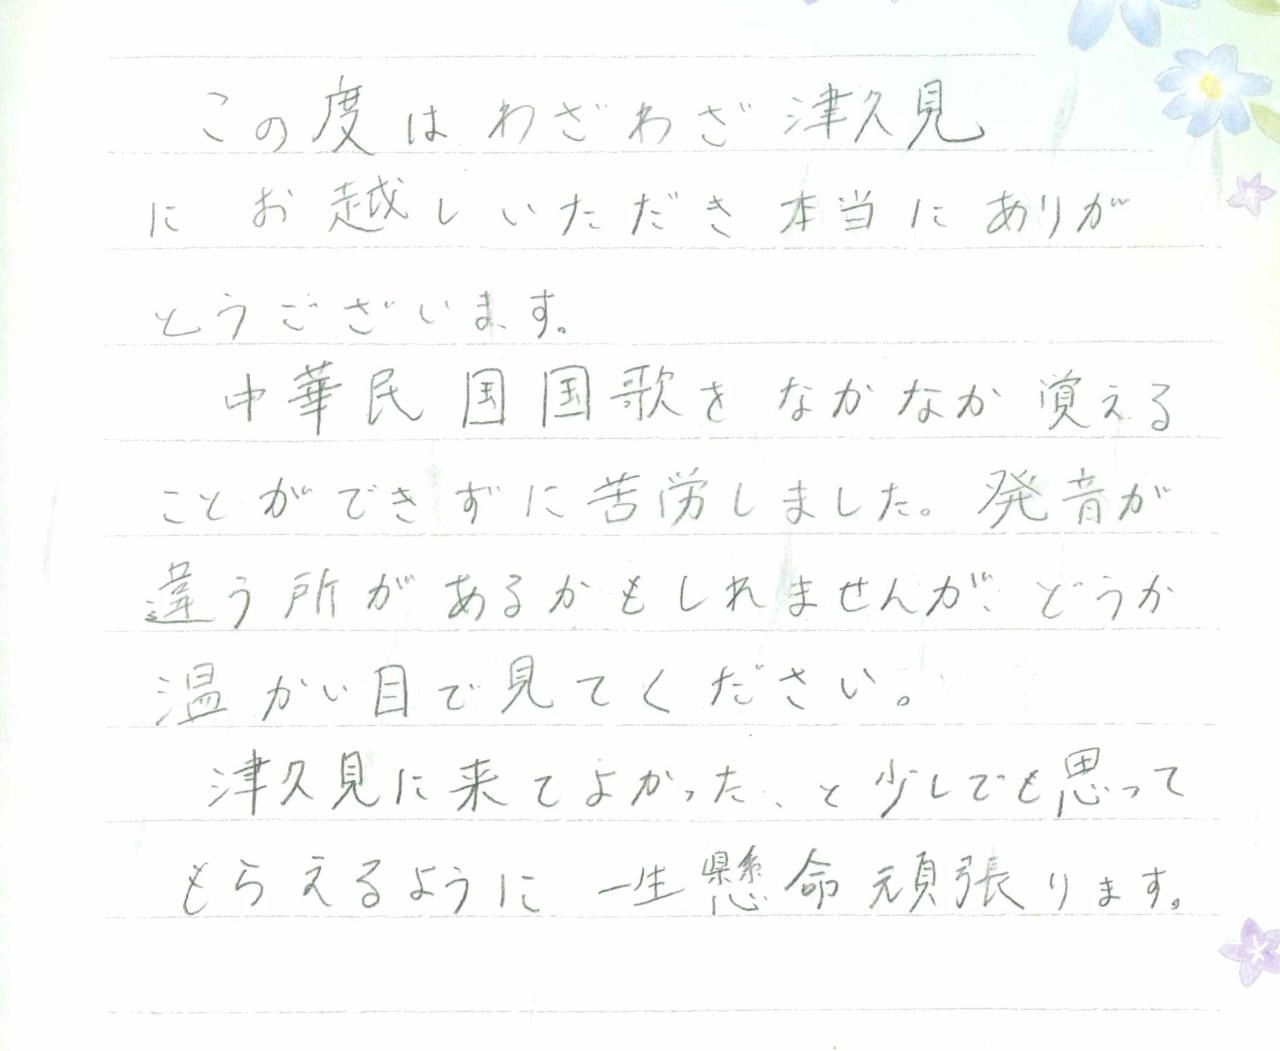 この度はわざわざ津久見
にお越しいただき本当にありが
とうございます。
中華民国国歌をなかなか覚える
ことができずに苦労しました。発音が
違う所があるかもしれませんが、どうか
温かい目で見てください。
津久見に来てよかった、と少しでも思って
もらえるように一生懸命頑張ります。